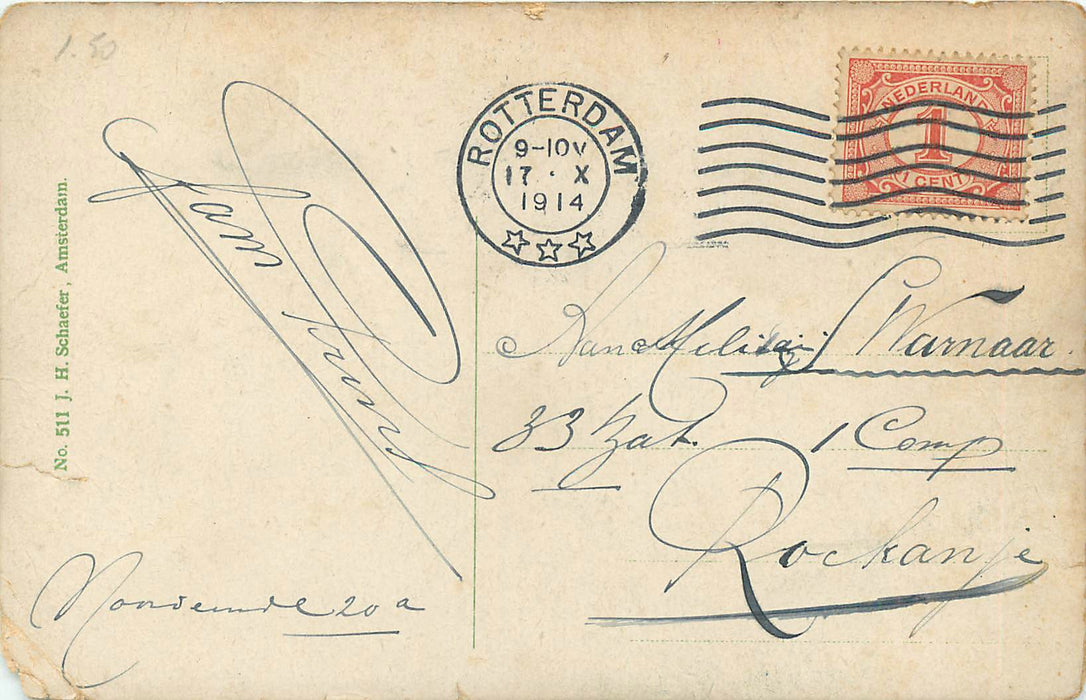 1.50
ROTTERDAM
9-10V
17 · X
1914
NEDERLAND
1
1 CENT
No. 511 J. H. Schaefer, Amsterdam.
Jan
Aan Militair Warnaar
33 Bat. 1 Comp
Rockanje
20a